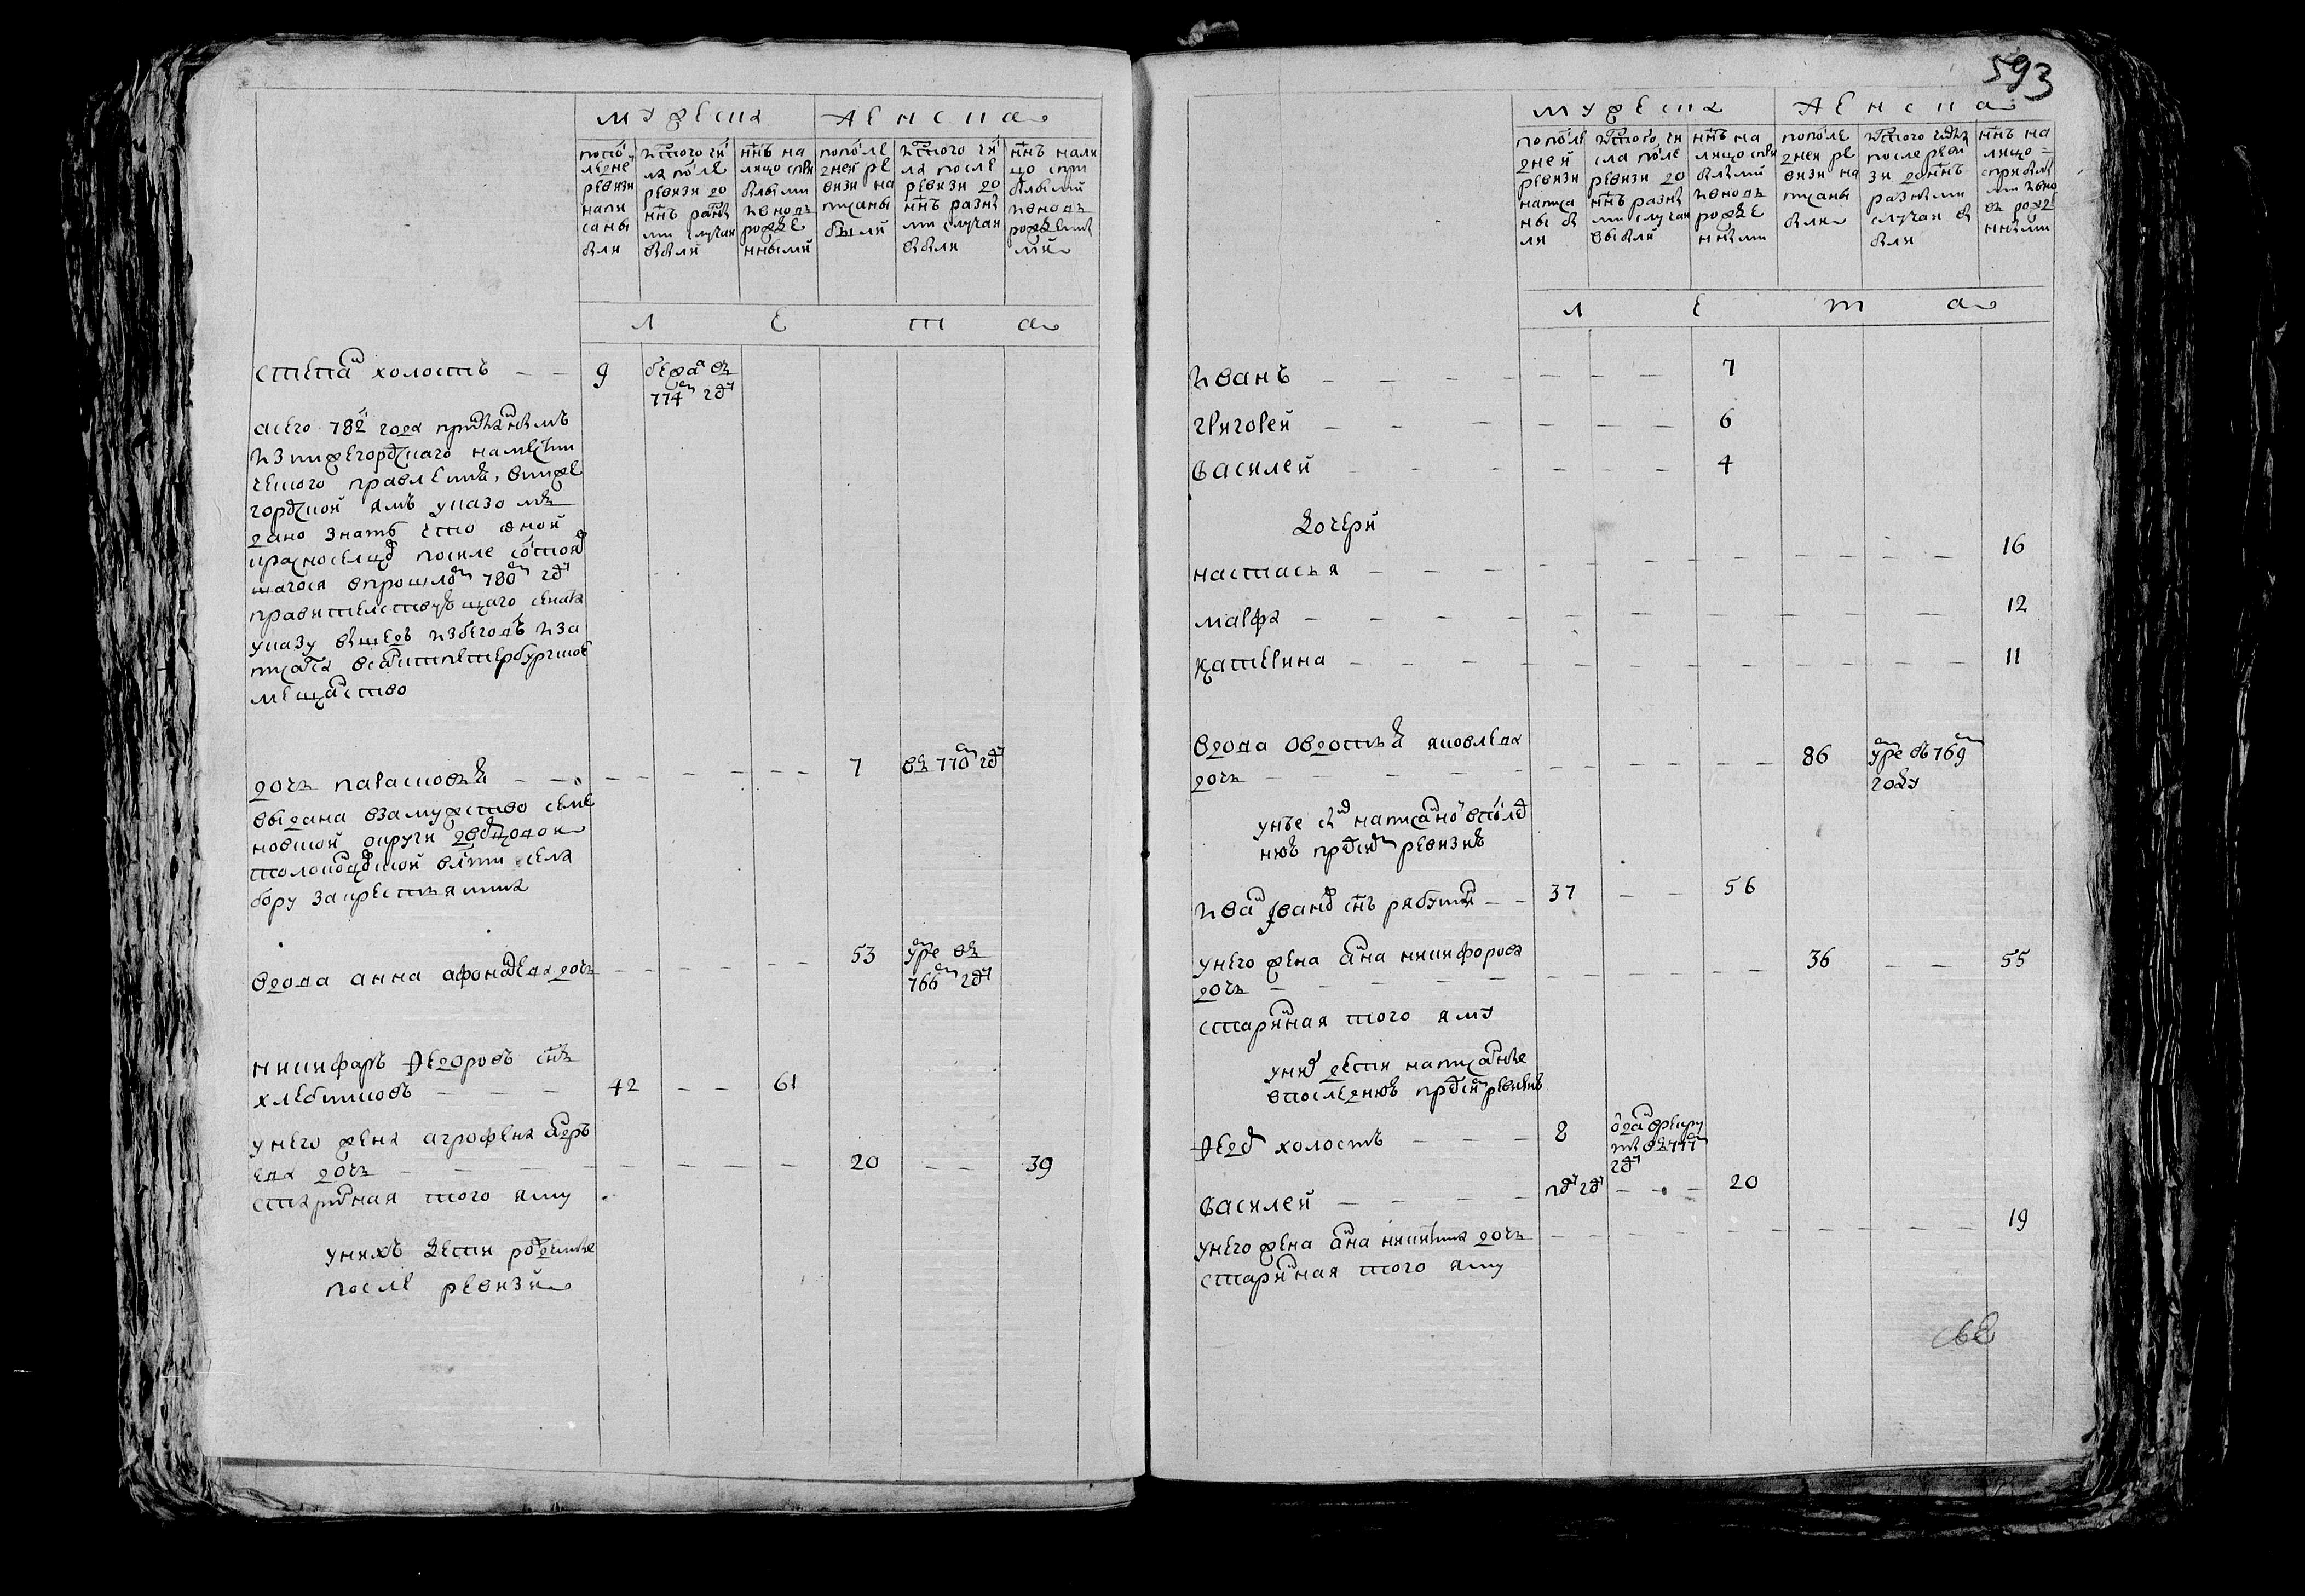 мужеска
женска
попо
ледне
ревизи
напи
саны
были
истого чи
ла после
ревизи до
ннѣ разны
ми случаи
выбыли
ннѣ на
лицо спри
былыми
ивновь
рожде
нными
попосле
дней ре
визи на
писаны
были
истого чи
ла после
ревизи до
ннѣ разны
ми случаи
выбыли
ннѣ нали
цо спри
былыми
ивновь
рожденны
ми
л е т а
степан холостъ — — 9 бежал въ
774м году
асего 782 года присланнымъ
изнижегородскаго наместни
ческого правления, внижего
городской ямъ указомъ
дано знать что оной
после состояв
шагося впрошлом 780м году
правителствующаго сената
указу вышедъ избеговъ иза
писался всанктпетербургское
мещанство
дочь парасковья — — 7 въ 770м году
выдана взамужство семе
новской округи
толоконцовской волости села
бору закрестьянина
вдова анна афонасьева дочь — — 53 умре въ
766м году
никифаръ федоровъ снъ
хлебниковъ — — — 42 — — 61
унего жена агрофена андрѣ
ева дочь — — 20 — — 39
старинная того яму
унихъ дети рожденные
после ревизи
593
мужеска
женска
попосле
дней
ревизи
написа
ны бы
ли
истого чи
сла после
ревизи до
ннѣ разны
ми случаи
выбыли
ннѣ на
лицо спри
былыми
ивновь
рожде
нными
попосле
дней ре
визи на
писаны
были
истого числа
после реви
зи доннѣ
разными
случаи вы
были
ннѣ на
лицо
сприбылы
ми ивно
вь рожде
нными
л е т а
иванъ — — — 7
григорей — — — 6
василей — — — 4
дочери
настасья — — — 16
марфа — — — 12
катерина — — — 11
вдова овдотья яковлева
дочь — — 86 умре въ 769м
году
унее сын написанной впослед
нюю пред сим ревизию
иван иванов снъ рябухин — — 37 — — 56
унего жена анна никифорова
дочь — — 36 — — 55
старинная того яму
уних дети написанные
впоследнюю пред сим ревизию
федор холостъ — — — 2 отдан врекру
ты въ 777м
году
василей — — — полгоду — — 20
унего жена анна никитина дочь — — 19
старинная того яму